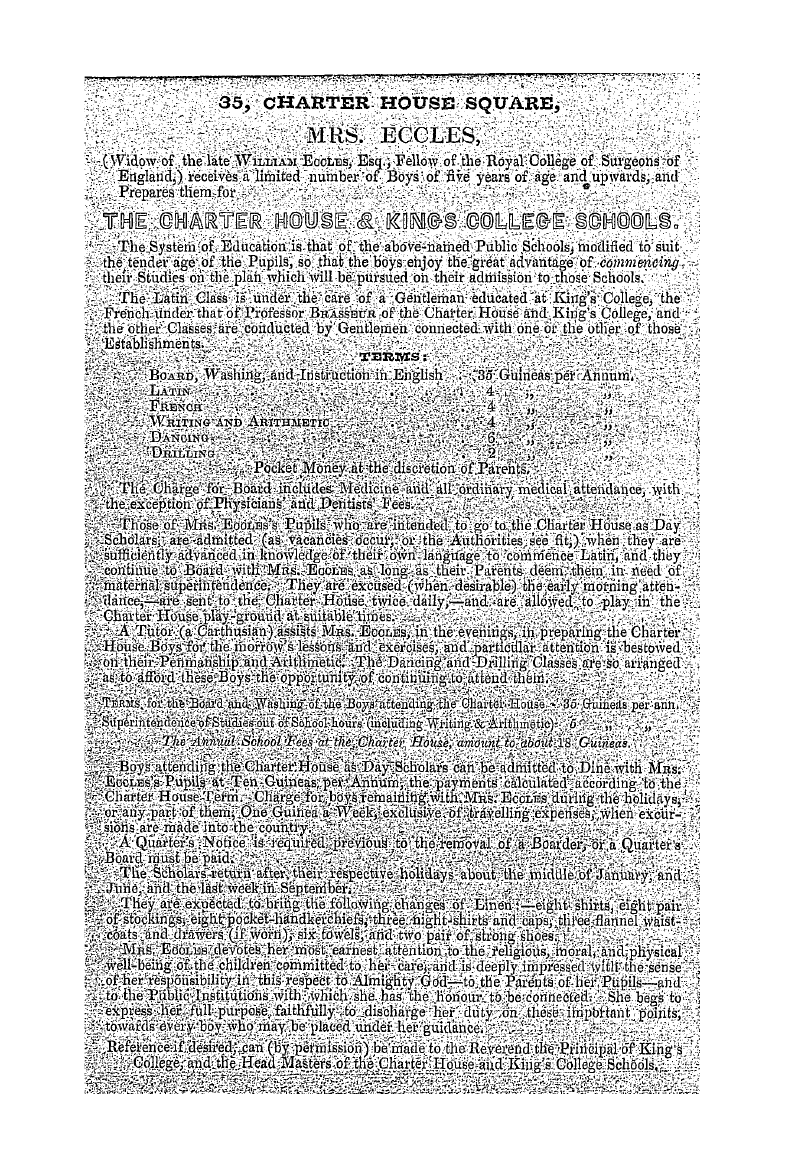 35, CHARTER HOUSE SQUARE,
MRS. ECCLES,
(Widow of the late WILLIAM ECCLES, Esq., Fellow of the Royal College of Surgeons of
England,) receives a limited number of Boys of five years of age and upwards, and
Prepares them for
THE CHARTER HOUSE & KING'S COLLEGE SCHOOLS.
The System of Education is that of the above-named Public Schools, modified to suit
the tender age of the Pupils, so that the boys enjoy the great advantage of commencing
their Studies on the plan which will be pursued on their admission to those Schools.
The Latin Class is under the care of a Gentleman educated at King's College, the
French under that of Professor BRASSEUR of the Charter House and King's College, and
the other Classes are conducted by Gentlemen connected with one or the other of those
Establishments.
TERMS:
BOARD, Washing, and Instruction in English 35 Guineas per Annum.
LATIN 4 „ „
FRENCH 4 „ „
WRITING AND ARITHMETIC 4 „ „
DANCING 6 „ „
DRILLING 2 „ „
Pocket Money at the discretion of Parents.
The Charge for Board includes Medicine and all ordinary medical attendance, with
the exception of Physicians' and Dentists' Fees.
Those of MRS. ECCLES'S Pupils who are intended to go to the Charter House as Day
Scholars, are admitted (as vacancies occur, or the Authorities see fit,) when they are
sufficiently advanced in knowledge of their own language to commence Latin, and they
continue to Board with MRS. ECCLES as long as their Parents deem them in need of
maternal superintendence. They are excused (when desirable) the early morning atten-
dance,—are sent to the Charter House twice daily,—and are allowed to play in the
Charter House play-ground at suitable times.
A Tutor (a Carthusian) assists MRS. ECCLES, in the evenings, in preparing the Charter
House Boys for the morrow's lessons and exercises, and particular attention is bestowed
on their Penmanship and Arithmetic. The Dancing and Drilling Classes are so arranged
as to afford these Boys the opportunity of continuing to attend them.
TERMS, for the Board and Washing of the Boys attending the Charter House - 35 Guineas per ann.
Superintendence of Studies out of School hours (including Writing & Arithmetic) - 6 „ „
The Annual School Fees at the Charter House, amount to about 18 Guineas.
Boys attending the Charter House as Day Scholars can be admitted to Dine with MRS.
ECCLES'S Pupils at Ten Guineas per Annum, the payments calculated according to the
Charter House Term. Charge for boys remaining with MRS. ECCLES during the holidays,
or any part of them, One Guinea a Week, exclusive of travelling expenses, when excur-
sions are made into the country.
A Quarter's Notice is required previous to the removal of a Boarder, or a Quarter's
Board must be paid.
The Scholars return after their respective holidays about the middle of January, and
June, and the last week in September.
They are expected to bring the following changes of Linen:—eight shirts, eight pair
of stockings, eight pocket-handkerchiefs, three night-shirts and caps, three flannel waist-
coats and drawers (if worn), six towels, and two pair of strong shoes.
MRS. ECCLES devotes her most earnest attention to the religious, moral, and physical
well-being of the children committed to her care, and is deeply impressed with the sense
of her responsibility in this respect to Almighty God—to the Parents of her Pupils—and
to the Public Institutions with which she has the honour to be connected. She begs to
express her full purpose, faithfully to discharge her duty on these important points,
towards every boy who may be placed under her guidance.
Reference if desired, can (by permission) be made to the Reverend the Principal of King's
College, and the Head Masters of the Charter House and King's College Schools.